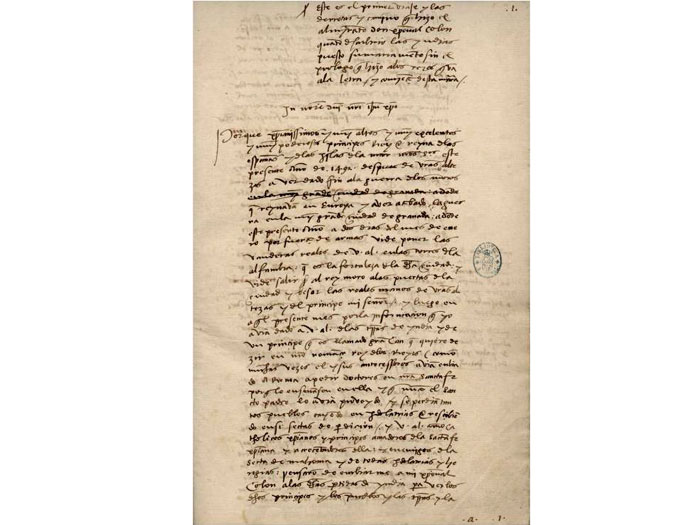 .1.
este es el primer viaje y las
derrotas y camino q hizo el
almirante don xpoual Colon
quando descubrio las yndias
puesto sumariamente sin el
prologo q hizo alos reyes q va
ala letra / y comiença desta manera /.
In noīe dñi nri ihu xpi
Porque xpianissimos y muy altos y muy excelentes
y muy poderosos principes Rey e Reyna delas
españas y delas yslas dela mar nros señores este
presente año de .1492. despues de vras alte
zas aver dado fin ala guerra delos moros
enla muy grande ciudad de granada: adonde
q reynavan en europa y aver acabado la guer
ra enla muy grande ciudad de granada: adonde
este presente año a dos dias del mes de ene
ro por fuerça de armas vide poner las
vanderas reales de .V. al. enlas torres dela
alfambra: q es la fortaleza dela dha ciudad: y
vide salir al rey moro alas puertas dela
ciudad y besar las reales manos de vras al
tezas y del principe mi señor: y luego en
aql presente mes por la informacion q yo
avia dado a .V. al. delas trras de yndia y de
un principe q es llamado gran Can q quiere de
zir en nro romançe rey delos reyes / como
muchas vezes el y sus antecessores avian enbia
do a Roma a pedir doctores en nra sancta fe
porq le enseñasen en ella / y q nunca el san
to padre le avia proveydo / y se perdian tan
tos pueblos cayendo en ydolatrias e resçibien
do ense sectas de perdiçion: / y V. al. como ca
tholicos xpianos y principes amadores dela santa fe
xpiana y acrecentadores della: y enemigos dela
secta de mahoma y de todas ydolatrias y he
regias: pensaron de enbiarme a mi xpoual
Colon alas dhas partidas de yndia pa ver los
dhos principes y los pueblos y las trras y la
.a. .1.